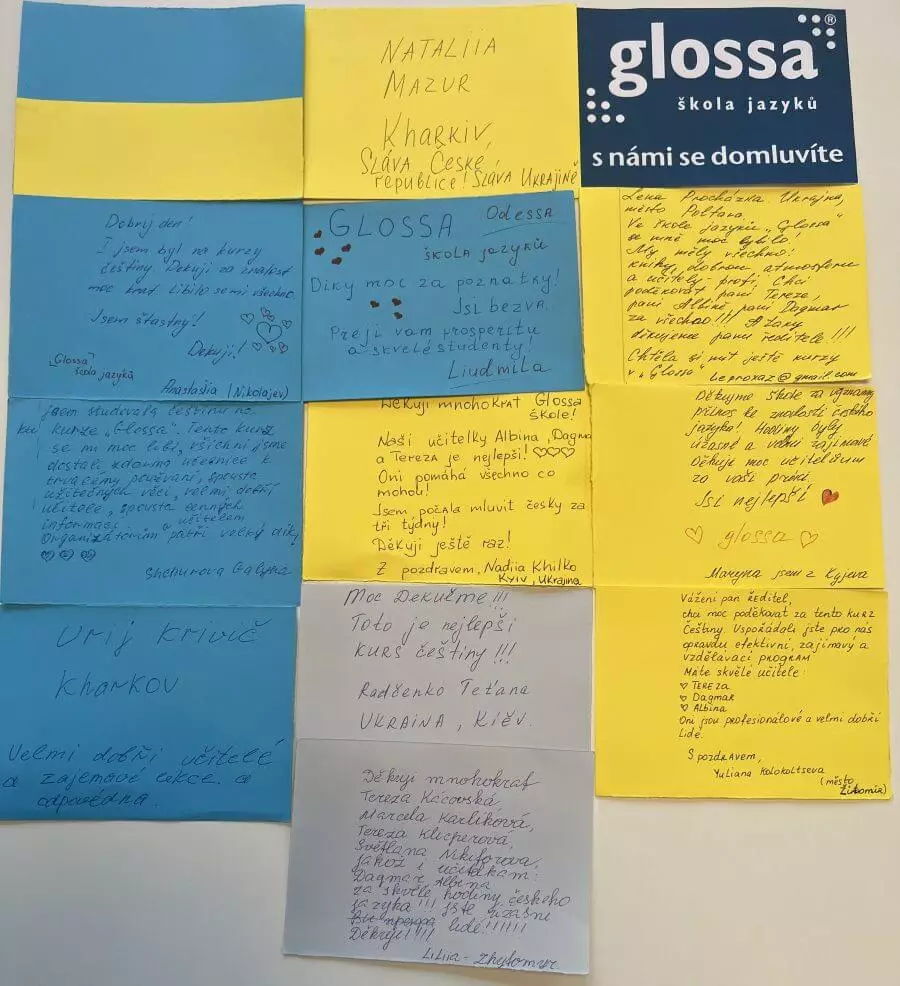 NATALIIA
MAZUR
KHARKIV,
SLÁVA ČESKÉ
republice! SLÁVA UKRAJINĚ
glossa®
škola jazyků
s námi se domluvíte
Dobrij den!
I jsem byl na kurzy
češtiny. Dekuji za znalost
moc krat. Libilo se mi všechno.
Jsem štastný!
Dekuji!
Glossa
škola jazyků
Anastasiia (Nikolajev)
GLOSSA Odessa
škola jazyků
Diky moc za poznatky!
Jsi bezva.
Preji vam prosperitu
a skvelé studenty!
Liudmila
Lena Procházka. Ukrajina,
město Poltava
Ve škole jazyků „Glossa"
se mně moc libilo!
My měly všechno:
knihy, dobrou atmosferu
a učitelů profi. Chci
poděkovat paní Tereze,
paní Albině, paní Dagmar
za všechno!!! A taky
děkujeme panu rediteli!!!
Chtěla si mit ještě kurzy
v „Glossa" Leproxaz@gmail.com
jsem studovala češtinu na
kurze „Glossa". Tento kurz
se mi moc libi, všichni jsme
dostali zdarma učebnice k
trvácímu používání, spousta
užitečných věcí, velmi dobří
učitele, spousta cenných
informací
Organizátorům a učitelům patří velký díky
Shchurova Galyna
Děkuji mnohokrát Glossa
škole!
Naši učitelky Albina, Dagma
a Tereza je nejlepší!
Oni pomáhá všechno co
mohou!
Jsem počala mluvit česky za
tři týdny!
Děkuji ještě raz!
Z pozdravem, Nadiia Khilko
Kyiv, Ukrajina
Děkujme škole za významný
přínos ke znalosti českého
jazyka! Hodiny byly
úžasné a velmi zajímavé
Děkuje moc učitelům
za vaši práci.
Jsi nejlepší
glossa
Maryna jsem z Kyjeva
Urij Krivič
Kharkov
Velmi dobři učitelé
a zajemavé lekce. a
odpovědná.
Moc Dekujme!!!
Toto je nejlepši
KURS češtiny!!!
Radčenko Teťana
UKRAINA, Kiěv.
Vážení pan ředitel,
chci moc poděkovat za tento kurz
Češtiny. Uspořádali jste pro nás
opravdu efektivní, zajímavý a
vzdělávací program
Máte skvělé učitele:
Tereza
Dagmar
Albina
Oni jsou profesionálové a velmi dobří
Lidé.
S pozdravem,
Yuliana Kolokoltseva
(město
Žitomir)
Děkuji mnohokrat
Tereza Kácovská
Marcela Karlíková,
Tereza Klicperová,
Světlana Nikiforova,
jakož i učitelkám:
Dagmar, Albina
za skvělé hodiny českého
jazyka!!! Jste úžasní
lidé!!!!!!
Děkuji!!!!
Liliia - Zhytomyr